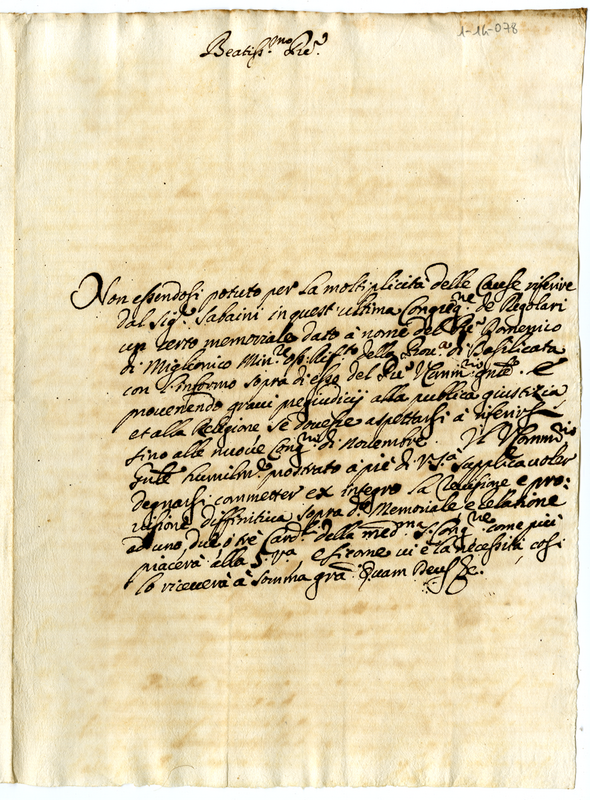 1-14-078
Beatiss.mo Pre.
Non essendosi potuto per la moltiplicità delle Cause riferire
dal Sig.r Sabaini in quest'ultima Congreg.ne de Regolari
un certo memoriale dato à nome del Pre. Domenico
di Miglionico Min.re Oss. Rif.to della Prou.a di Basilicata
con l'informo sopra di esso del Pre. Comm.rio Gnle. E
prouenendo graui pregiudicij alla publica giustizia
et alla Religione se douesse aspettarsi à riferirsi
sino alle nuoue Cong.ni di Nouembre. Il Comm.rio
Gnle humilm.te prostrato à pie di V. S.tà supplica uoler
degnarsi commetter ex integro la reuisione e pro:
uisione diffinitiua sopra d.o Memoriale e relatione
ad uno, due, ò tre Card.li della med.ma S. Cong.ne come più
piacerà alla S. V.ra, e sicome ui è la necessità, così
lo riceuerà à somma gra. Quam Deus &c.